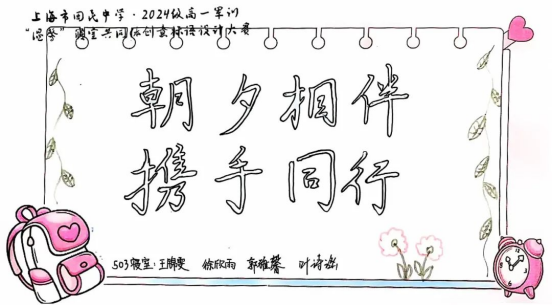 上海市回民中学·2024级高一军训
“温馨”寝室共同体创意标语设计大赛
朝夕相伴
携手同行
503寝室:王鹏雯 徐欣雨 郭雅馨 叶诗